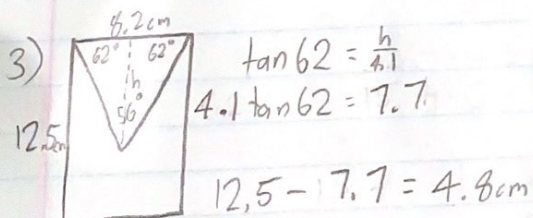 3)
8.2cm
62° 62°
h
56°
12.5cm
tan 62 = h/4.1
4.1 tan 62 = 7.7
12,5 - 7.7 = 4.8cm